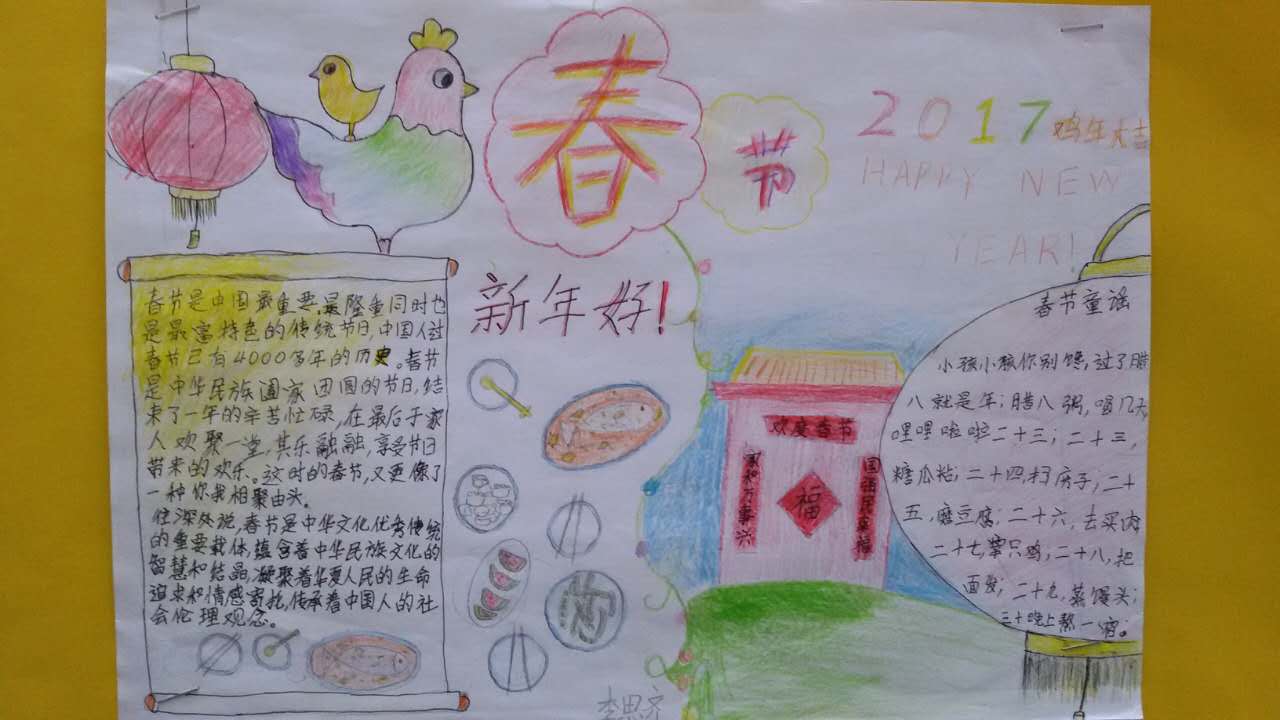 春节
2017鸡年大吉
HAPPY NEW
YEAR!
新年好!
春节是中国最重要、最隆重同时也
是最富特色的传统节日,中国人过
春节已有4000多年的历史。春节
是中华民族阖家团圆的节日,结
束了一年的辛苦忙碌,在最后于家
人欢聚一堂,其乐融融,享受节日
带来的欢乐。这时的春节,又更像了
一种你我相聚由头。
往深处说,春节是中华文化优秀传统
的重要载体,蕴含着中华民族文化的
智慧和结晶,凝聚着华夏人民的生命
追求和情感寄托,传承着中国人的社
会伦理观念。
欢度春节
家和万事兴
福
国强民富福
春节童谣
小孩小孩你别馋,过了腊
八就是年;腊八粥,喝几天,
哩哩啦啦二十三;二十三,
糖瓜粘;二十四,扫房子;二十
五,磨豆腐;二十六,去买肉
二十七,宰只鸡;二十八,把
面发;二十九,蒸馒头;
三十晚上熬一宿。
李思齐